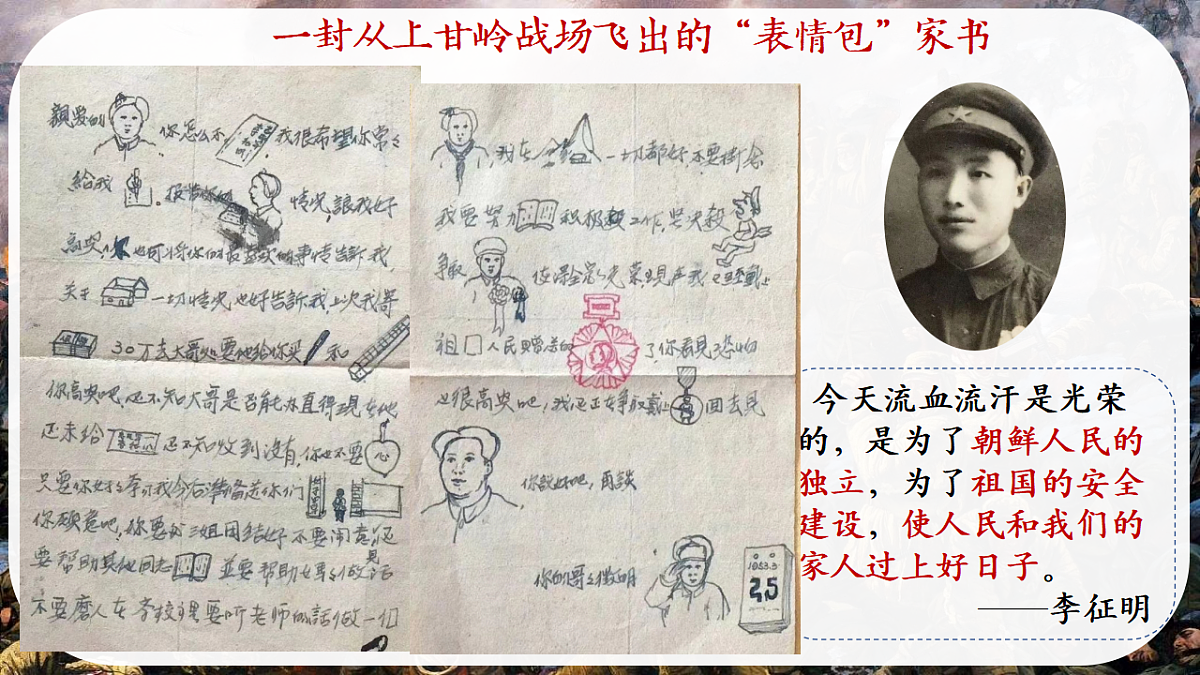 一封从上甘岭战场飞出的“表情包”家书
親爱的 你怎么不 我很希望你常々
給我 。报告你的 情况，讓我好
高兴，你也可将你的 的事情告訴我，
关于 一切情况也好告訴我，上次我寄
30万去大哥处要他給你买 和
你高兴吧，还不知大哥是否 現在他
还未给 还不知收到没有，你也不要 心
只要你好々学习我今后准备送你们
你願意吧，你要和三姐团结好不要闹意見还
要帮助其他同志 並要帮助母亲做活
不要磨人在学校裡要听老师的話做一個
我在 一切都好 不要掛念
我要努力 积极 工作，坚决殺
争取 使 光荣 現在我已经戴上
祖 人民贈送的 了，你看見恐怕
也很高兴吧，我还正在争取戴上 回去見
你說好吧，再談
你的哥々徵明
1953.3
25
今天流血流汗是光荣
的，是为了朝鲜人民的
独立，为了祖国的安全
建设，使人民和我们的
家人过上好日子。
——李征明